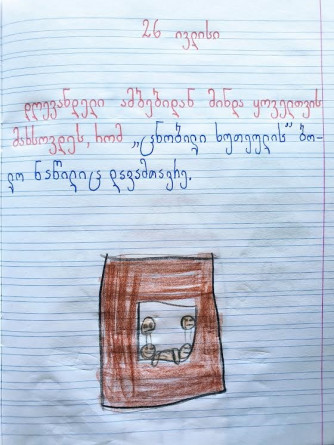 26 ივლისი
დღევანდელი ამბებიდან მინდა ყოველთვის
მახსოვდეს, რომ „ცნობილი ხუთეულის“ ბო-
ლო ნაწილიც დავამთავრე.